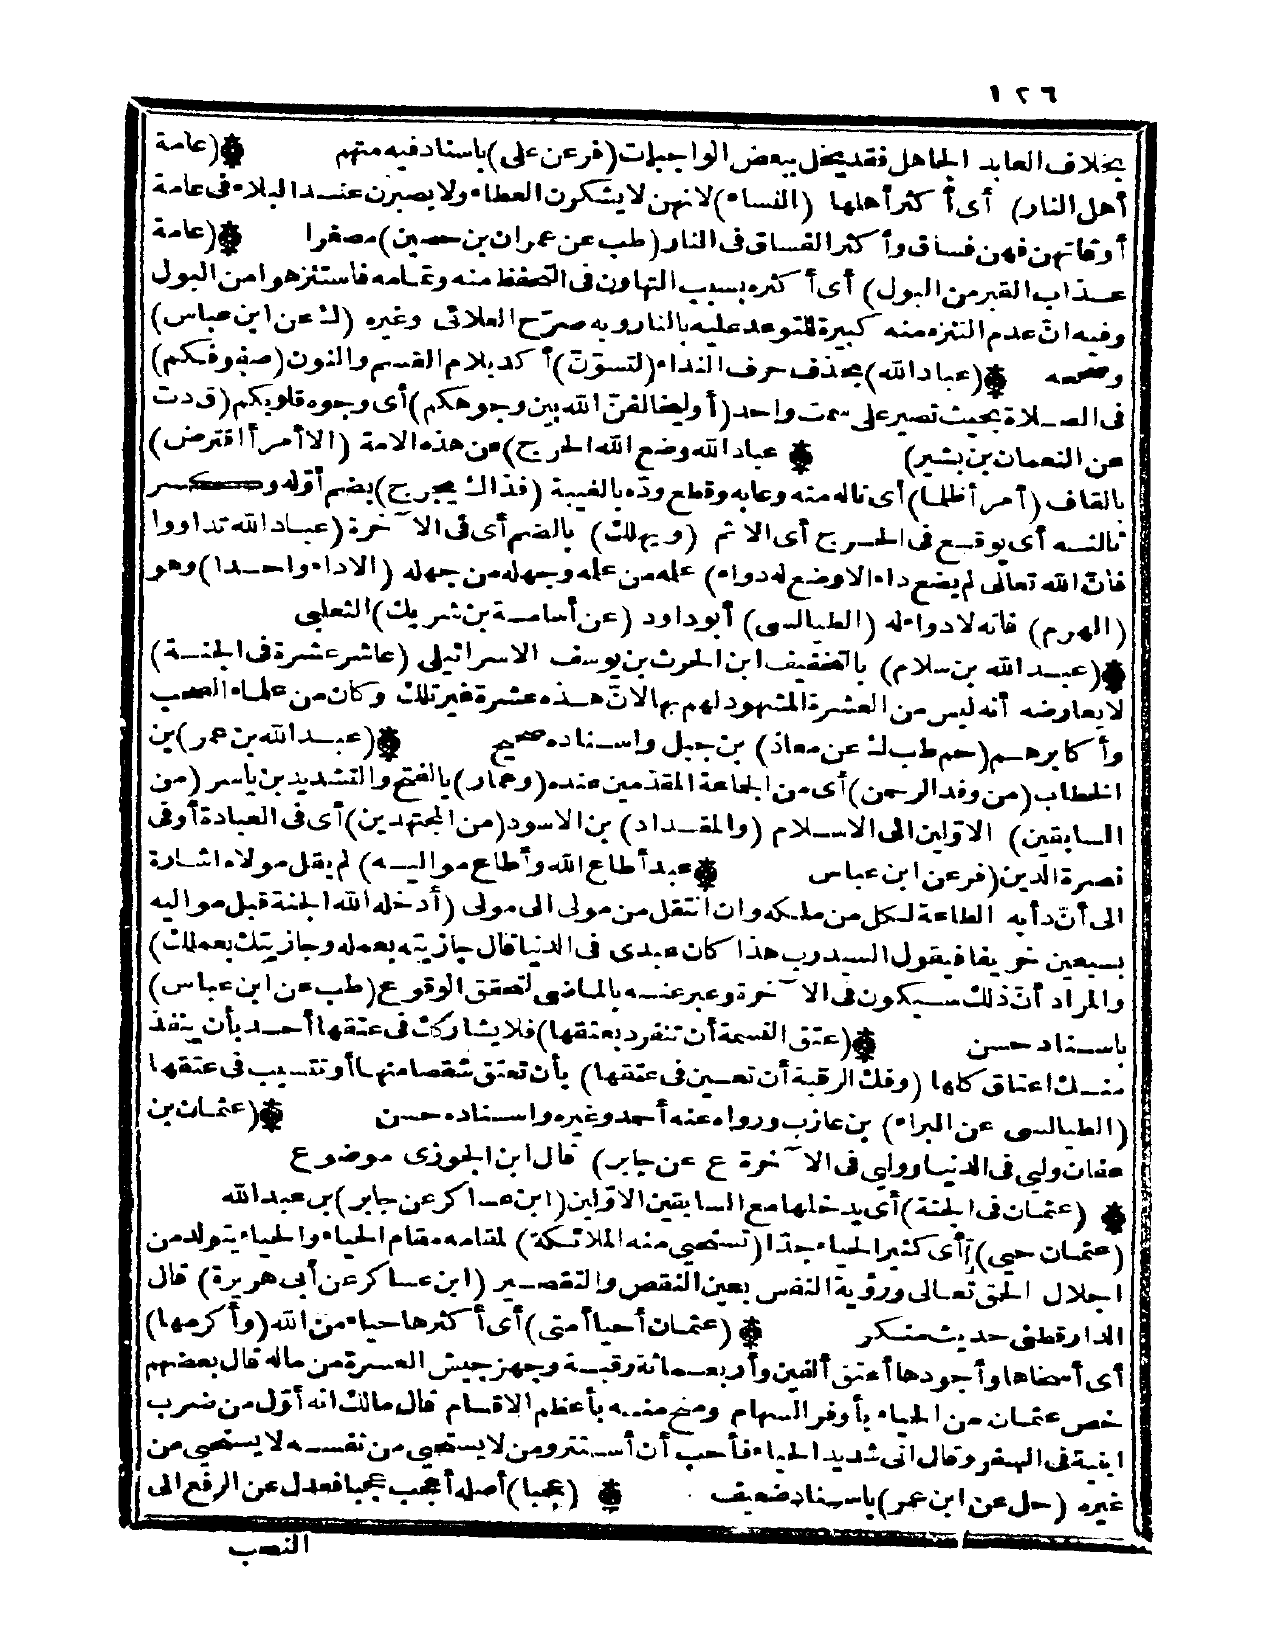 ١٢٦
بخلاف العابد الجاهل فقد يخل ببعض الواجبات (فر عن على) باسناد فيه متهم ۞ (عامة
أهل النار) أى أكثر أهلها (النساء) لانهن لا يشكرن العطاء ولا يصبرن عند البلاء فى عامة
أوقاتهن فهن فساق وأكثر الفساق فى النار (طب عن عمران بن حصين) مصغرا ۞ (عامة
عذاب القبر من البول) أى أكثره بسبب التهاون فى التحفظ منه وتمامه فاستنزهوا من البول
وفيه انّ عدم التنزه منه كبيرة للتوعد عليه بالنار وبه صرّح العلائى وغيره (ك عن ابن عباس)
وصححه ۞ (عباد الله) بحذف حرف النداء (لتسوّنّ) أكد بلام القسم والنون (صفوفكم)
فى الصلاة بحيث تصير على سمت واحد (أو ليخالفنّ الله بين وجوهكم) أى وجوه قلوبكم (ق د ت
عن النعمان بن بشير) ۞ عباد الله وضع الله الحرج) عن هذه الامة (الا امرأ اقترض)
بالقاف (امرأ ظلما) أى ناله منه وعابه وقطع ودّه بالغيبة (فذاك يحرج) بضم أوّله وكسر
ثالثه أى يوقع فى الحرج أى الاثم (ويهلك) بالضم أى فى الآخرة (عباد الله تداووا
فانّ الله تعالى لم يضع داء الا وضع له دواء) علمه من علمه وجهله من جهله (الا داء واحدا) وهو
(الهرم) فانه لا دواء له (الطيالسى) أبو داود (عن أسامة بن شريك) الثعلبى
۞ (عبد الله بن سلام) بالتخفيف ابن الحرث بن يوسف الاسرائيلى (عاشر عشرة فى الجنة)
لا يعارضه أنه ليس من العشرة المشهود لهم بها لانّ هذه عشرة غير تلك وكان من علماء الصحب
وأكابرهم (حم طب ك عن معاذ) بن جبل واسناده صحيح ۞ (عبد الله بن عمر) بن
الخطاب (من وفد الرحمن) أى من الجماعة المقدّمين عنده (وعمار) بالفتح والتشديد بن ياسر (من
السابقين) الاوّلين الى الاسلام (والمقداد) بن الاسود (من المجتهدين) أى فى العبادة أو فى
نصرة الدين (فر عن ابن عباس ۞ عبد أطاع الله وأطاع مواليه) لم يقل مولاه اشارة
الى أنّ دأبه الطاعة لكل من ملكه وان انتقل من مولى الى مولى (أدخله الله الجنة قبل مواليه
بسبعين خريفا فيقول السيد رب هذا كان عبدى فى الدنيا قال جازيته بعمله وجازيتك بعملك)
والمراد أنّ ذلك سيكون فى الآخرة وعبر عنه بالماضى لتحقق الوقوع (طب عن ابن عباس)
باسناد حسن ۞ (عتق النسمة أن تنفرد بعتقها) فلا يشاركك فى عتقها أحد بأن ينفذ
منك اعتاق كلها (وفك الرقبة أن تعين فى عتقها) بأن تعتق شقصا منها أو تتسبب فى عتقها
(الطيالسى عن البراء) بن عازب ورواه عنه أحمد وغيره واسناده حسن ۞ (عثمان بن
عفان وليي فى الدنيا ووليي فى الآخرة ع عن جابر) قال ابن الجوزى موضوع
۞ (عثمان فى الجنة) أى يدخلها مع السابقين الاوّلين (ابن عساكر عن جابر) بن عبد الله
(عثمان حيى) أى كثير الحياء جدّا (تستحيى منه الملائكة) لمقامه مقام الحياء والحياء يتولد من
اجلال الحق تعالى ورؤية النفس بعين النقص والتقصير (ابن عساكر عن أبى هريرة) قال
الدارقطنى حديث منكر ۞ (عثمان أحيا أمتى) أى أكثرها حياء من الله (وأكرمها)
أى أسخاها وأجودها أعتق ألفين وأربعمائة رقبة وجهز جيش العسرة من ماله قال بعضهم
خص عثمان من الحياء بأوفر السهام ومنح منه بأعظم الاقسام قال مالك انه أوّل من ضرب
ابنية فى السفر وقال انى شديد الحياء فأحب أن أستتر ومن لا يستحيى من نفسه لا يستحيى من
غيره (حل عن ابن عمر) باسناد ضعيف ۞ (عجبا) أصله أعجب عجبا فعدل عن الرفع الى
النصب